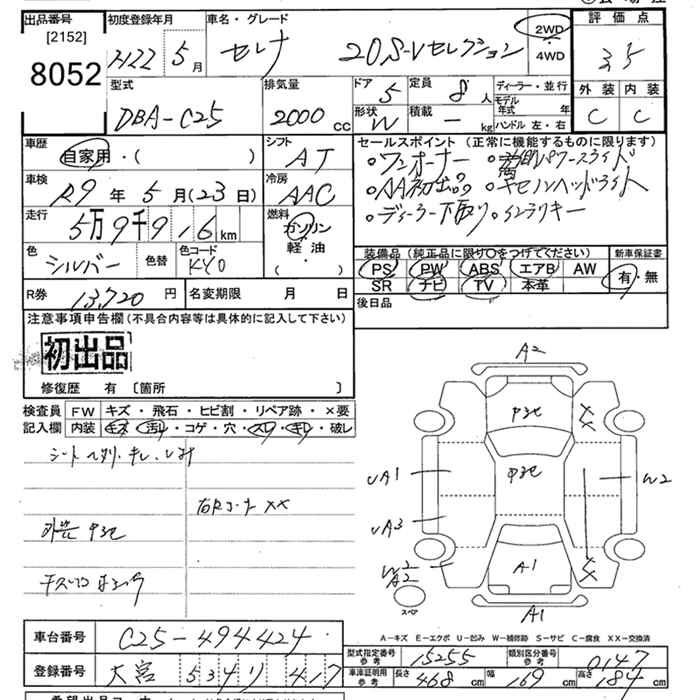 出品番号 初度登録年月 車名・グレード 評価点
[2152] H22 5月 セレナ 20S-Vセレクション 2WD・4WD 3.5
8052
型式 排気量 ドア 5 定員 8人 ディーラー・並行 外装 内装
DBA-C25 2000cc 形状 W 積載 ー kg モデル年式 年 C C
ハンドル 左・右
車歴 シフト セールスポイント(正常に機能するものに限ります)
自家用・( ) AT ・ワンオーナー
車検 冷房 ・AA初出品 ・キセノンヘッドライト
R9年5月(23日) AAC ・ディーラー下取り ・インテリキー
走行 燃料
5万9千9 16km ガソリン
色 色替 色コード 軽油
シルバー KY0 ( )
装備品(純正品に限り○をつけてください) 新車保証書
PS PW ABS エアB AW 有・無
SR ナビ TV 本革
R券 13,720円 名変期限 月 日 後日品
注意事項申告欄(不具合内容等は具体的に記入して下さい)
初出品
修復歴 有 〔箇所 〕
検査員 FW キズ・飛石・ヒビ割・リペア跡・×要
記入欄 内装 キズ・汚れ・コゲ・穴・スレ・キレ・破レ
右Rコーナー XX
A2
UA1 W2
UA3
W2
A2 A1
スペア
A1
A-キズ E-エクボ U-凹み W-補修跡 S-サビ C-腐食 XX-交換済
車台番号 C25-494424
型式指定番号 参考 15255 類別区分番号 参考 0147
登録番号 大宮 534 リ 417
車庫証明用 参考 長さ 468cm 幅 169cm 高さ 184cm